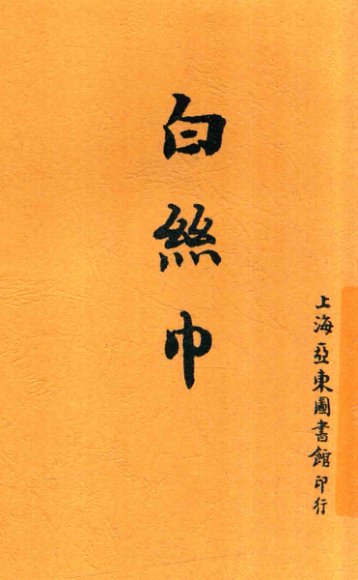 白絲巾
上海亞東圖書館印行